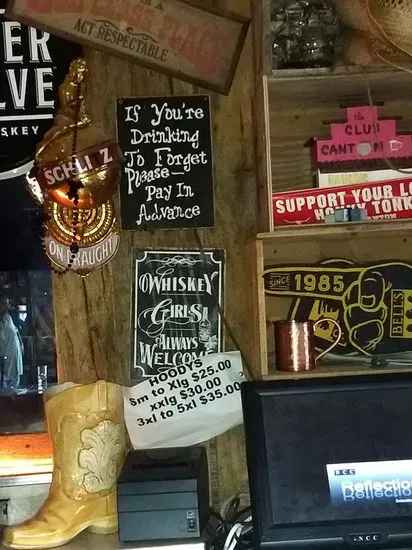 ACT RESPECTABLE
ER
LVE
SKEY
SCHLITZ
ON DRAUGHT
If You're
Drinking
To Forget
Please—
Pay In
Advance
WHISKEY
GIRLS
Always
Welcome
HOODY'S
Sm to Xlg $25.00
xxlg $30.00
3xl to 5xl $35.00
the
CLUB
CANTON
SUPPORT YOUR LO
HONKY TONK
CANTON
SINCE 1985
BELL'S
NCC
Reflection
NCC